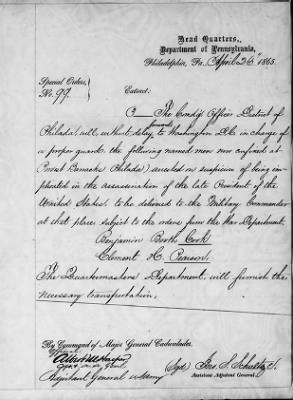 Head Quarters,
Department of Pennsylvania,
Philadelphia, Pa, April 26" 1865.
Special Orders,
No. 99.
Extract:
3 The Comdg Officer District of
Philada, will without delay, forward to Washington D.C. in charge of
a proper guard, the following named men now confined at
Provost Barracks Philada), arrested on suspicion of being im-
plicated in the assassination of the late President of the
United States, to be delivered to the Military Commander
at that place subject to the orders from the War Department.
Benjamin Booth Cook
Clement H. Pearson.
The Quartermasters Department, will furnish the
necessary transportation.
By Command of Major General Cadwalader.
Official
Adjutant General
(Sgd) Jno. S. Schultze,
Assistant Adjutant General.